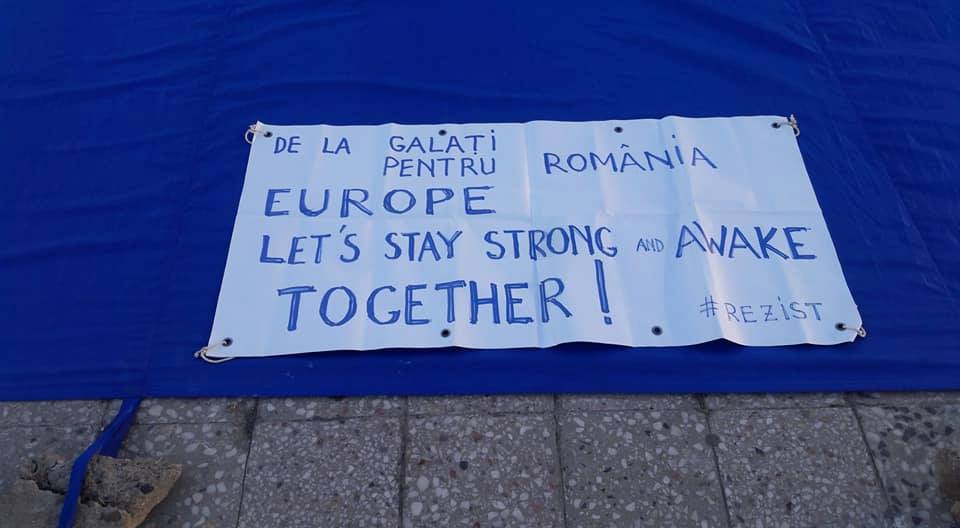 DE LA GALAȚI
PENTRU ROMÂNIA
EUROPE
LET'S STAY STRONG AND AWAKE
TOGETHER!
#REZIST